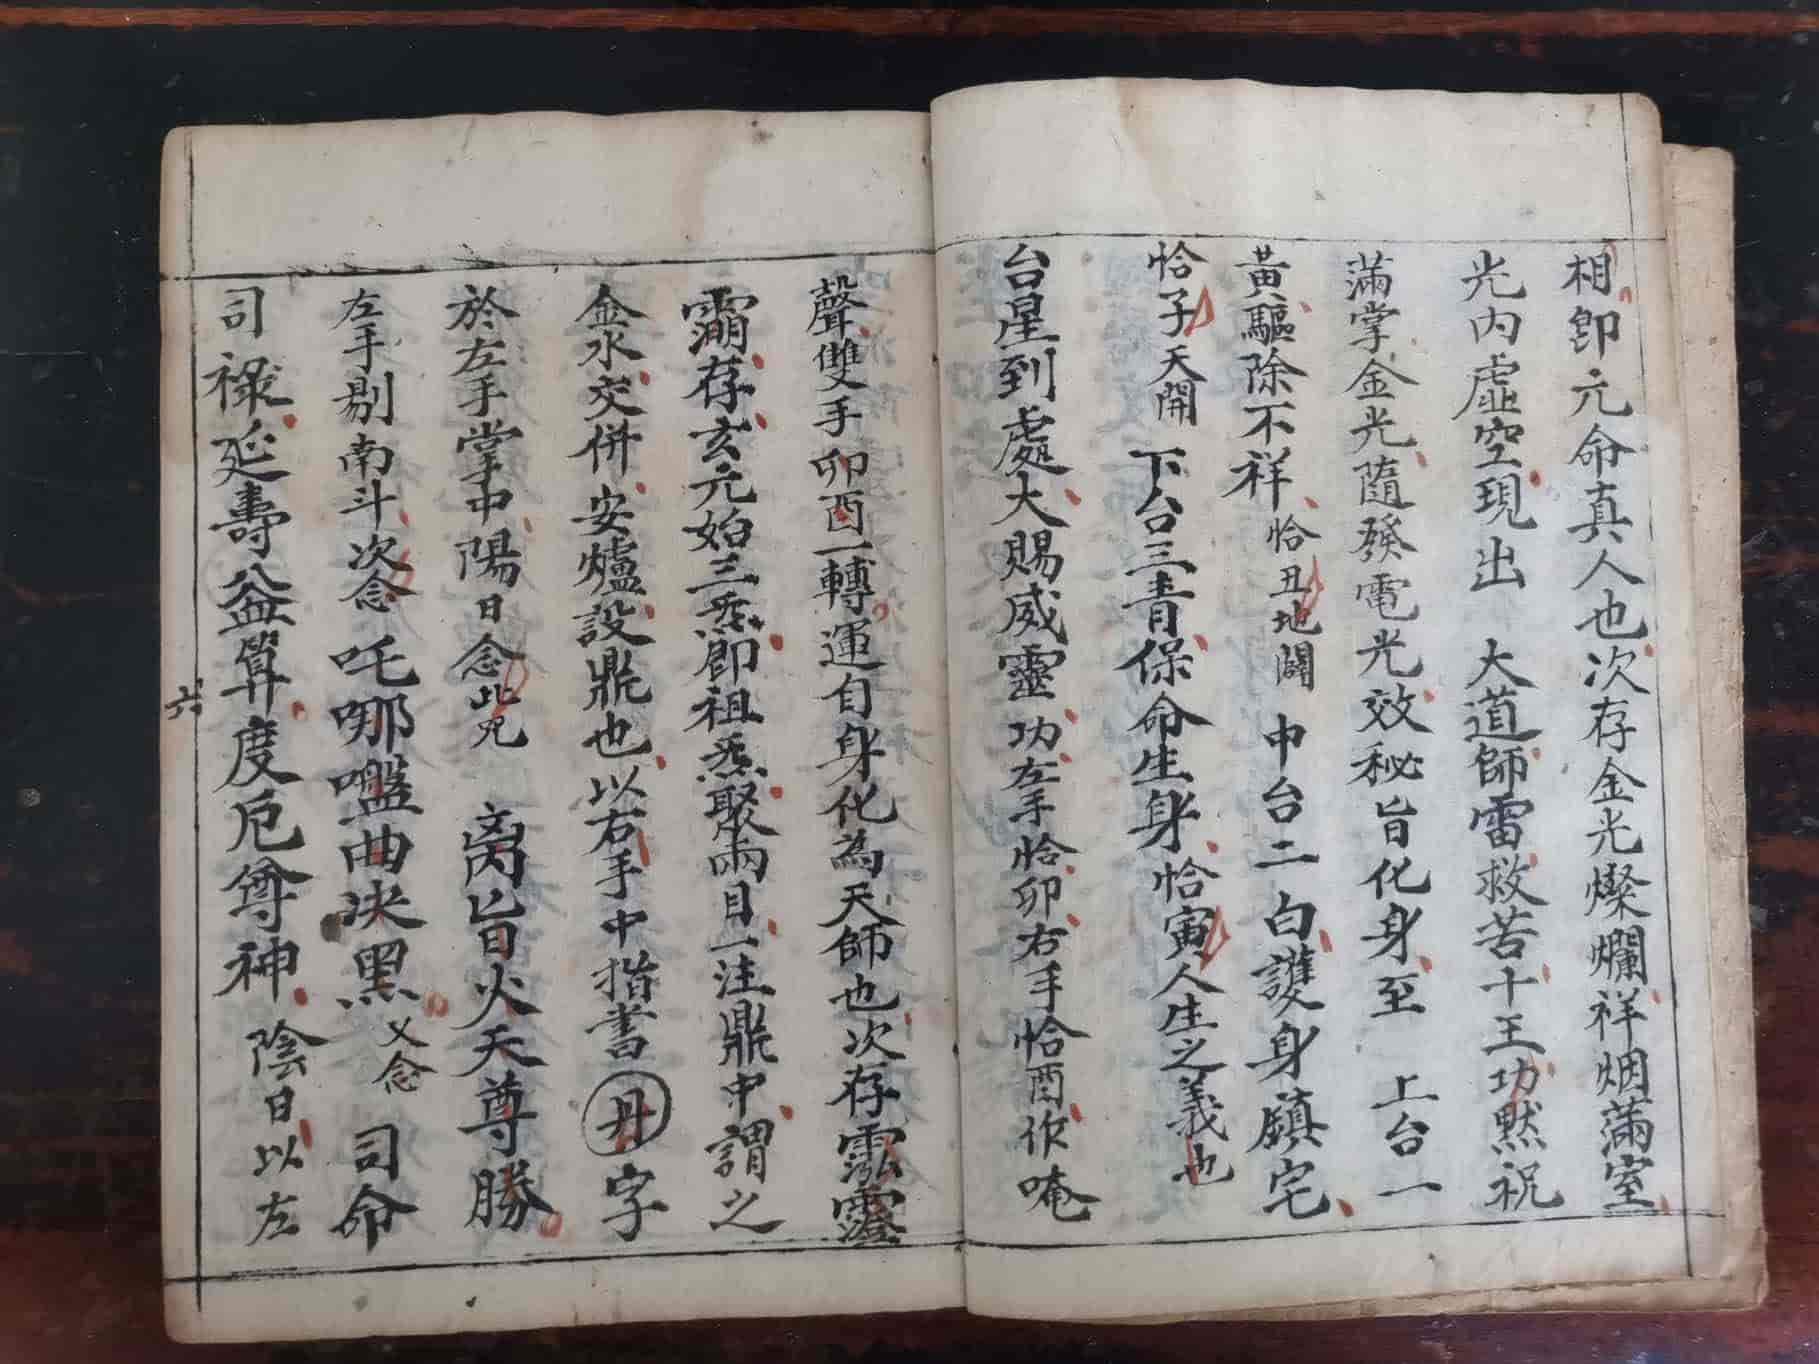 相即元命真人也次存金光燦爛祥烟滿室
光內虛空現出 大道師雷救苦十王功默祝
滿掌金光隨發電光效秘旨化身至 上台一
黃驅除不祥 恰丑地闢 中台二白護身鎮宅
恰子天開 下台三青保命生身 恰寅人生之義也
台星到處大賜威靈功左手恰卯右手恰酉作唵
聲雙手卯酉一轉運自身化為天師也次存
存玄元始三炁即祖炁聚兩目一注鼎中謂之
金水交併安爐設鼎也以右手中指書丹字
於左手掌中陽日念此咒 旨火天尊勝
左手剔南斗次念 吒哪囕曲决黑 又念 司命
司祿延壽益算度厄尊神 陰日以左
六